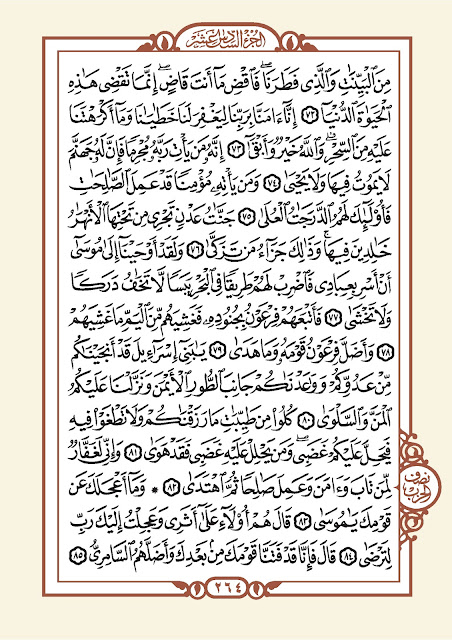 الجزء السادس عشر
مِنَ ٱلْبَيِّنَٰتِ وَٱلَّذِى فَطَرَنَا ۖ فَٱقْضِ مَآ أَنتَ قَاضٍ ۖ إِنَّمَا تَقْضِى هَٰذِهِ
ٱلْحَيَوٰةَ ٱلدُّنْيَآ ٧٢ إِنَّآ ءَامَنَّا بِرَبِّنَا لِيَغْفِرَ لَنَا خَطَٰيَٰنَا وَمَآ أَكْرَهْتَنَا
عَلَيْهِ مِنَ ٱلسِّحْرِ ۗ وَٱللَّهُ خَيْرٌ وَأَبْقَىٰٓ ٧٣ إِنَّهُۥ مَن يَأْتِ رَبَّهُۥ مُجْرِمًا فَإِنَّ لَهُۥ جَهَنَّمَ
لَا يَمُوتُ فِيهَا وَلَا يَحْيَىٰ ٧٤ وَمَن يَأْتِهِۦ مُؤْمِنًا قَدْ عَمِلَ ٱلصَّٰلِحَٰتِ
فَأُو۟لَٰٓئِكَ لَهُمُ ٱلدَّرَجَٰتُ ٱلْعُلَىٰ ٧٥ جَنَّٰتُ عَدْنٍ تَجْرِى مِن تَحْتِهَا ٱلْأَنْهَٰرُ
خَٰلِدِينَ فِيهَا ۚ وَذَٰلِكَ جَزَآءُ مَن تَزَكَّىٰ ٧٦ وَلَقَدْ أَوْحَيْنَآ إِلَىٰ مُوسَىٰٓ
أَنْ أَسْرِ بِعِبَادِى فَٱضْرِبْ لَهُمْ طَرِيقًا فِى ٱلْبَحْرِ يَبَسًا لَّا تَخَٰفُ دَرَكًا
وَلَا تَخْشَىٰ ٧٧ فَأَتْبَعَهُمْ فِرْعَوْنُ بِجُنُودِهِۦ فَغَشِيَهُم مِّنَ ٱلْيَمِّ مَا غَشِيَهُمْ
٧٨ وَأَضَلَّ فِرْعَوْنُ قَوْمَهُۥ وَمَا هَدَىٰ ٧٩ يَٰبَنِىٓ إِسْرَٰٓءِيلَ قَدْ أَنجَيْنَٰكُم
مِّنْ عَدُوِّكُمْ وَوَٰعَدْنَٰكُمْ جَانِبَ ٱلطُّورِ ٱلْأَيْمَنَ وَنَزَّلْنَا عَلَيْكُمُ
ٱلْمَنَّ وَٱلسَّلْوَىٰ ٨٠ كُلُوا۟ مِن طَيِّبَٰتِ مَا رَزَقْنَٰكُمْ وَلَا تَطْغَوْا۟ فِيهِ
فَيَحِلَّ عَلَيْكُمْ غَضَبِى ۖ وَمَن يَحْلِلْ عَلَيْهِ غَضَبِى فَقَدْ هَوَىٰ ٨١ وَإِنِّى لَغَفَّارٌ
لِّمَن تَابَ وَءَامَنَ وَعَمِلَ صَٰلِحًا ثُمَّ ٱهْتَدَىٰ ٨٢ * وَمَآ أَعْجَلَكَ عَن
قَوْمِكَ يَٰمُوسَىٰ ٨٣ قَالَ هُمْ أُو۟لَآءِ عَلَىٰٓ أَثَرِى وَعَجِلْتُ إِلَيْكَ رَبِّ
لِتَرْضَىٰ ٨٤ قَالَ فَإِنَّا قَدْ فَتَنَّا قَوْمَكَ مِنۢ بَعْدِكَ وَأَضَلَّهُمُ ٱلسَّامِرِىُّ ٨٥
نصف
الحزب
٢٦٤